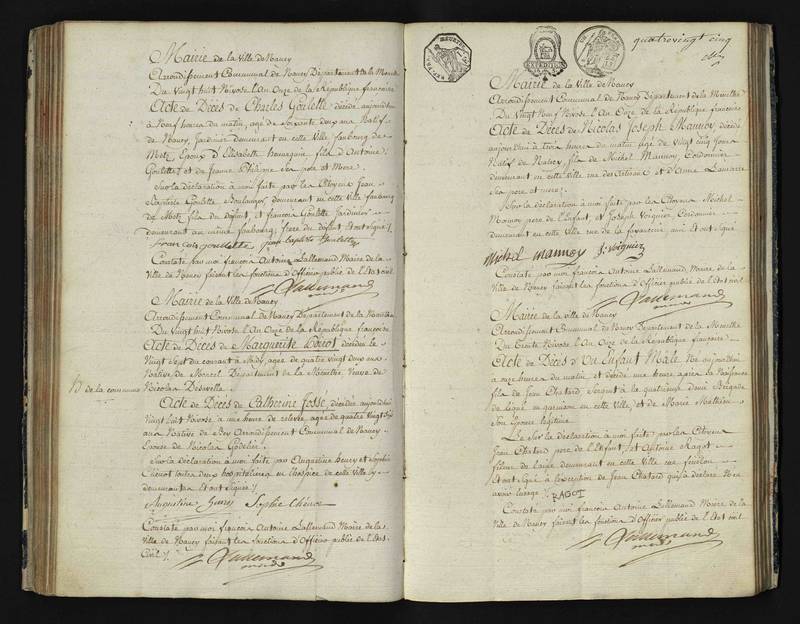 Mairie de la Ville de Nancy
Arrondissement Communal de Nancy Département de la Meurthe
Du Vingt huit Nivose l'An Onze de la République francoise
Acte de Décès de Charles Goulette décédé aujourdhui
à Neuf heures du matin, agé de soixante deux ans Natif
de Nancy, Jardinier demeurant en cette Ville faubourg de
Metz Epoux d'Elisabeth fils d'Antoine
Goulette et de Jeanne Philippe ses pere et Mere.
Sur la déclaration à moi faite par les Citoyens Jean
Baptiste Goulette Boulanger, demeurant en cette Ville faubourg
de Metz fils du défunt, et françois Goulette Jardinier
demeurant au même faubourg, frere du défunt et ont signé
francois goullette jean baptiste Goulette
Constaté par moi françois Antoine Lallemand Maire de la
Ville de Nancy faisant les fonctions d'Officier public de l'Etat civil
Lallemand
Mairie de la Ville de Nancy
Arrondissement Communal de Nancy Département de la Meurthe
Du Vingt huit Nivose l'An Onze de la République francoise
Acte de Décès de Marguerite décédée le
Vingt Sept du courant à midy, agée de quatre vingt deux ans
Native de Département de la Meurthe Veuve de
de la commune Nicolas
Acte de Décès de Catherine fosse, décédée aujourdhui
Vingt huit Nivose à une heure de relevée, agée de quatre Vingt
ans Native de Bey Arrondissement Communal de Nancy
Epouse de Nicolas
Sur la déclaration à moi faite par Augustine henry et Sophie
toutes deux hospitalieres en l'hospice de cette Ville y
demeurantes et ont Signé
Augustine henry Sophie
Constaté par moi françois Antoine Lallemand Maire de la
Ville de Nancy faisant les fonctions d'Officier public de l'Etat
Civil
Lallemand
quatrevingt cinq
Mairie de la Ville de Nancy
Arrondissement Communal de Nancy Département de la Meurthe
Du Vingt Neuf Nivose l'An Onze de la République francoise
Acte de Décès de Nicolas Joseph Mannoy décédé
aujourdhui à trois heures du matin agé de Vingt cinq Jours
Natif de Nancy, fils de Michel Mannoy, Cordonnier
demeurant en cette Ville rue des Artisans et d'Anne
ses pere et mere.
Sur la déclaration à moi faite par les Citoyens Michel
Mannoy pere de l'Enfant, et Joseph Voignier Cordonnier
demeurant en cette Ville rue de la fayancerie, qui ont signé
Michel mannoy J. voignier
Constaté par moi françois Antoine Lallemand Maire de la
Ville de Nancy faisant les fonctions d'Officier public de l'Etat civil
Lallemand
Mairie de la Ville de Nancy
Arrondissement Communal de Nancy Département de la Meurthe
Du Trente Nivose l'An Onze de la République francoise
Acte de Décès d'Un Enfant Male Né aujourdhui
à onze heures du matin, et décédé une heure après sa Naissance
fils de Jean Chatard Sergent à la quatrieme demi Brigade
de Ligne en garnison en cette Ville, et de Marie Mathieu
son Epouse légitime
Sur la déclaration à moi faite par les Citoyens
Jean Chatard pere de l'Enfant, et Antoine Ragot
demeurant en cette Ville rue
et ont signé à l'exception de Jean Chatard qui a declaré N'en
avoir l'usage. RAGOT
Constaté par moi françois Antoine Lallemand Maire de la
Ville de Nancy faisant les fonctions d'Officier public de l'Etat civil
Lallemand